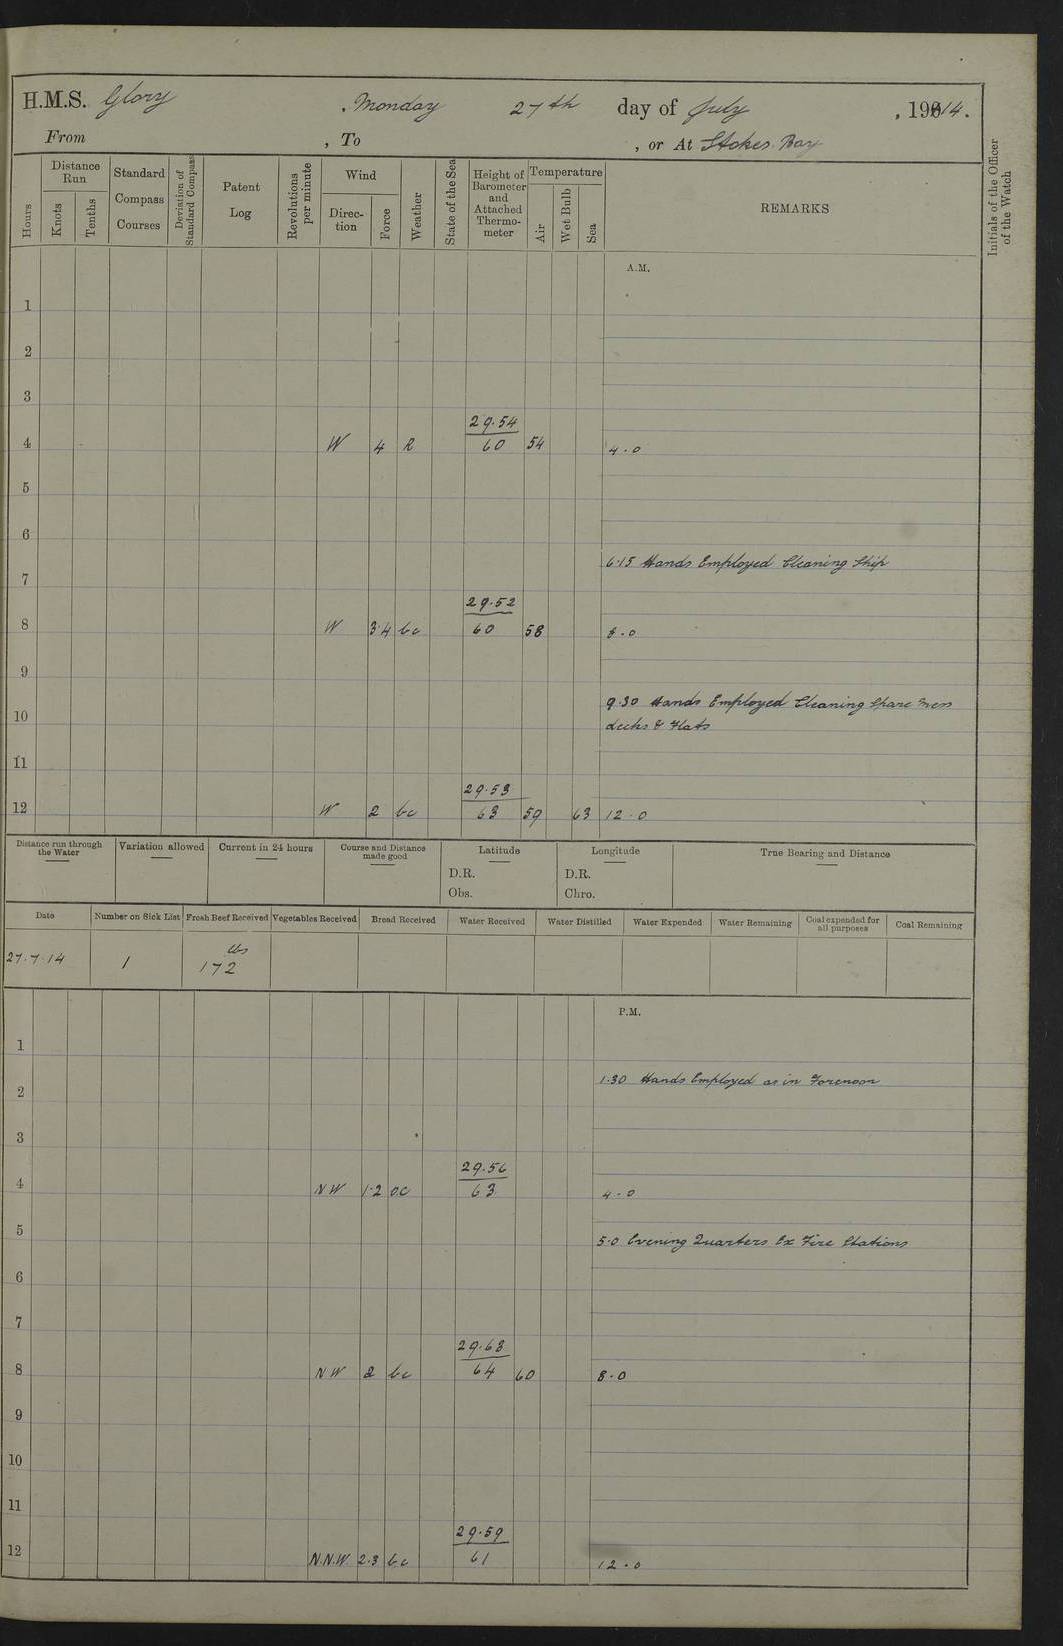 H.M.S. Glory , Monday 27th day of July , 1914.
From , To , or At Stokes Bay
Hours
Distance Run
Knots
Tenths
Standard Compass Courses
Deviation of Standard Compass
Patent Log
Revolutions per minute
Wind
Direc-tion
Force
Weather
State of the Sea
Height of Barometer and Attached Thermo-meter
Temperature
Air
Wet Bulb
Sea
REMARKS
Initials of the Officer of the Watch
A.M.
1
2
3
29.54
4 W 4 R 60 54 4.0
5
6
6.15 Hands Employed Cleaning Ship
7
29.52
8 W 3.4 bc 60 58 8.0
9
9.30 Hands Employed Cleaning Spare Mess
10 decks & Flats
11
29.53
12 W 2 bc 63 59 63 12.0
Distance run through the Water
Variation allowed
Current in 24 hours
Course and Distance made good
Latitude
D.R.
Obs.
Longitude
D.R.
Chro.
True Bearing and Distance
Date
Number on Sick List
Fresh Beef Received
Vegetables Received
Bread Received
Water Received
Water Distilled
Water Expended
Water Remaining
Coal expended for all purposes
Coal Remaining
lbs
27.7.14 1 172
P.M.
1
1.30 Hands Employed as in Forenoon
2
3
29.56
4 NW 1.2 oc 63 4.0
5 5.0 Evening Quarters Ex Fire Stations
6
7
29.63
8 NW 2 bc 64 60 8.0
9
10
11
29.59
12 N.N.W. 2.3 bc 61 12.0